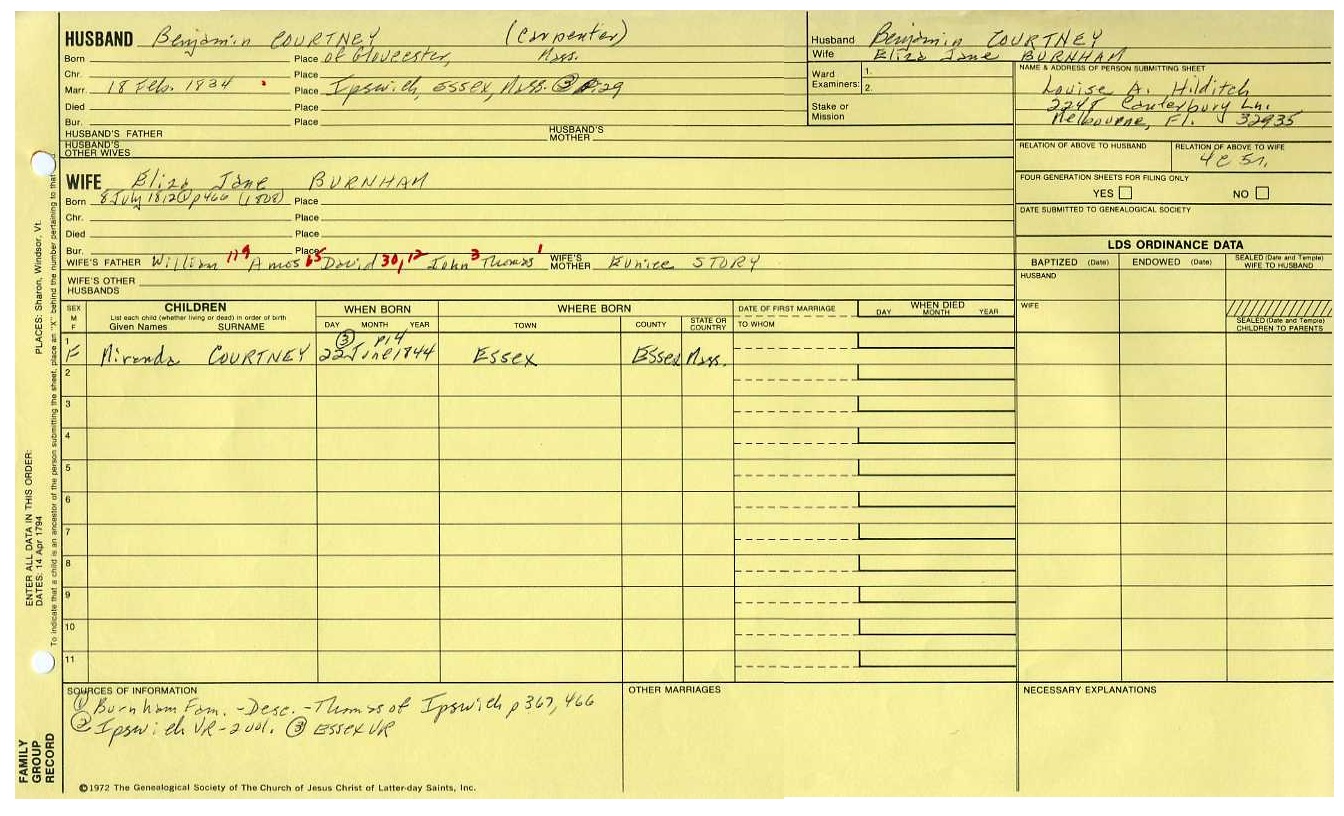 HUSBAND Benjamin COURTNEY (Carpenter)
Born Place of Gloucester, Mass.
Chr. Place
Marr. 18 Feb. 1834 Place Ipswich, Essex, Mass. ③ p29
Died Place
Bur. Place
HUSBAND'S FATHER HUSBAND'S MOTHER
HUSBAND'S OTHER WIVES
Husband Benjamin COURTNEY
Wife Eliza Jane BURNHAM
Ward Examiners: 1.
2.
Stake or Mission
NAME & ADDRESS OF PERSON SUBMITTING SHEET
Louise A. Hilditch
2248 Canterbury Ln.
Melbourne, Fl. 32935
RELATION OF ABOVE TO HUSBAND RELATION OF ABOVE TO WIFE
4c 5r.
FOUR GENERATION SHEETS FOR FILING ONLY
YES NO
DATE SUBMITTED TO GENEALOGICAL SOCIETY
WIFE Eliza Jane BURNHAM
Born 8 July 1812 ① p466 (1808) Place
Chr. Place
Died Place
Bur. Place
WIFE'S FATHER William 119 Amos 65 David 30,12 John 3 Thomas 1 WIFE'S MOTHER Eunice STORY
WIFE'S OTHER HUSBANDS
LDS ORDINANCE DATA
BAPTIZED (Date) ENDOWED (Date) SEALED (Date and Temple) WIFE TO HUSBAND
HUSBAND
WIFE
SEALED (Date and Temple) CHILDREN TO PARENTS
SEX M F
CHILDREN
List each child (whether living or dead) in order of birth
Given Names SURNAME
WHEN BORN
DAY MONTH YEAR
WHERE BORN
TOWN COUNTY STATE OR COUNTRY
DATE OF FIRST MARRIAGE
TO WHOM
WHEN DIED
DAY MONTH YEAR
③ p14
1 F Miranda COURTNEY 22 June 1844 Essex Essex Mass.
2
3
4
5
6
7
8
9
10
11
SOURCES OF INFORMATION
① Burnham Fam. - Desc. - Thomas of Ipswich p 367, 466
② Ipswich VR - 2 vol. ③ Essex VR
OTHER MARRIAGES
NECESSARY EXPLANATIONS
©1972 The Genealogical Society of The Church of Jesus Christ of Latter-day Saints, Inc.
FAMILY GROUP RECORD
ENTER ALL DATA IN THIS ORDER:
DATES: 14 Apr 1794
PLACES: Sharon, Windsor, Vt.
To indicate that a child is an ancestor of the person submitting the sheet, place an "X" behind the number pertaining to that